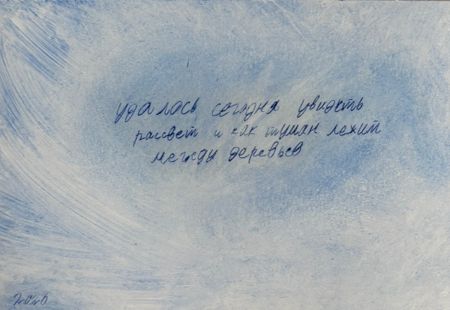 удалось сегодня увидеть
рассвет и как туман лежит
между деревьев